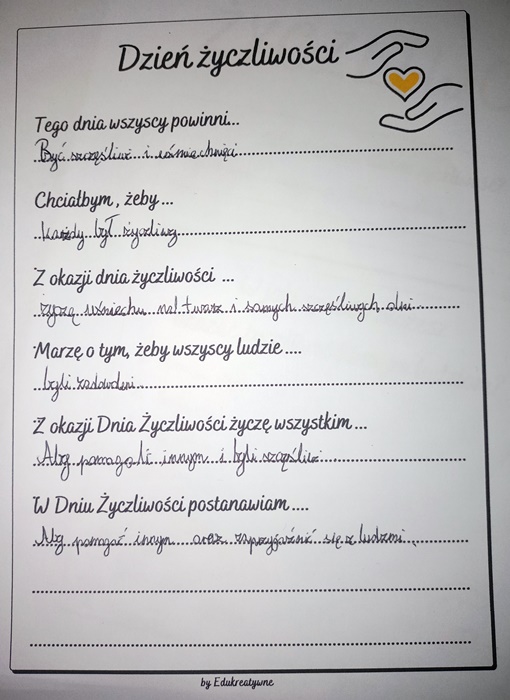 Dzień życzliwości
Tego dnia wszyscy powinni...
Być szczęśliwi i uśmiechnięci
Chciałbym, żeby...
każdy był życzliwy
Z okazji dnia życzliwości ...
życzę uśmiechu na twarz i samych szczęśliwych dni
Marzę o tym, żeby wszyscy ludzie....
byli zadowoleni
Z okazji Dnia Życzliwości życzę wszystkim...
Aby pomagali innym i byli szczęśliwi
W Dniu Życzliwości postanawiam....
Aby pomagać innym oraz zaprzyjaźnić się z ludzmi
by Edukreatywne